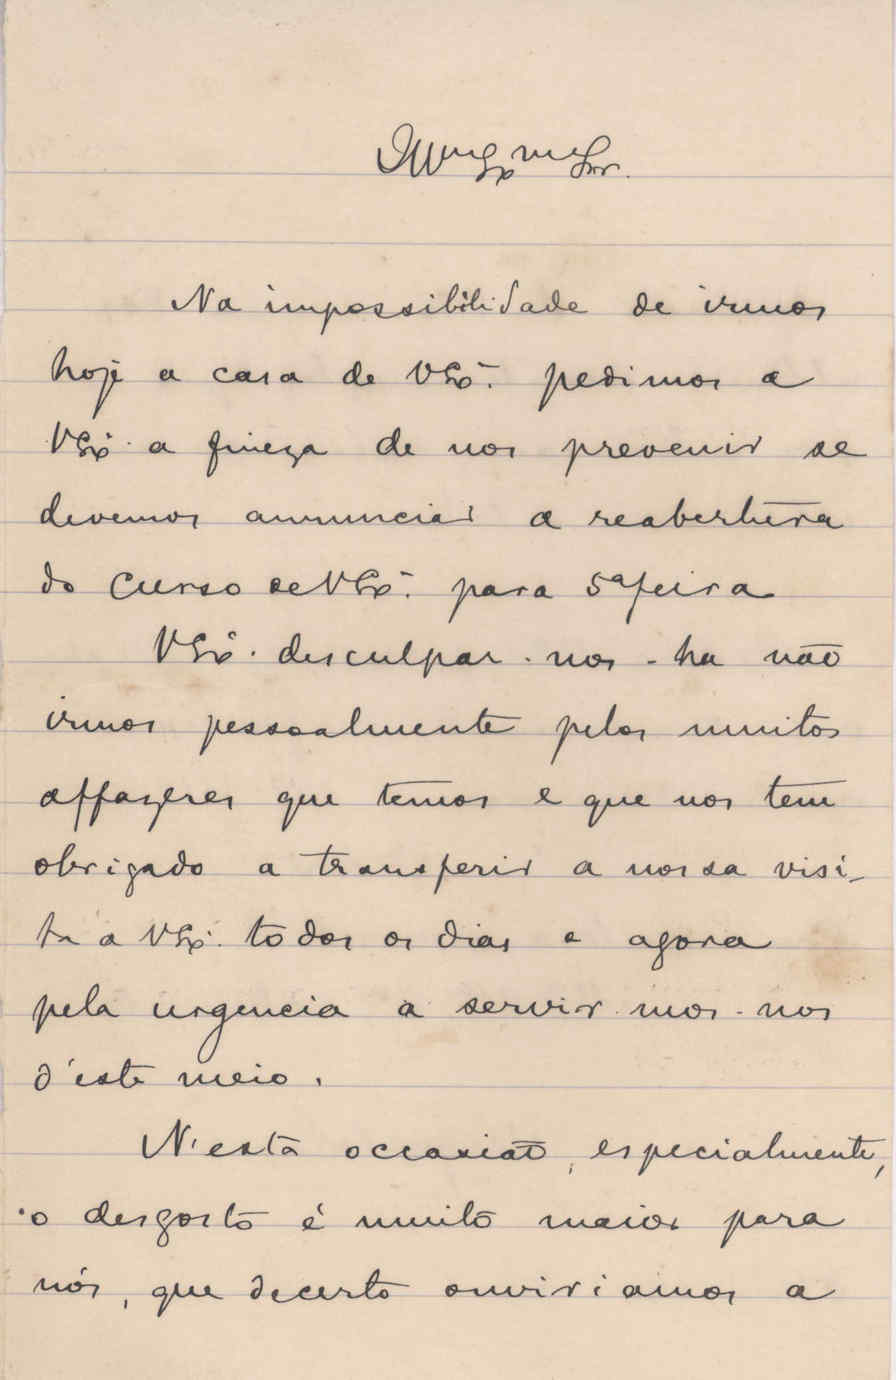 Illmo Exmo Snr.
Na impossibilidade de irmos
hoje a casa de VExª. pedimos a
VExª. a fineza de nos prevenir se
devemos annunciar a reabertura
do curso de VExª. para 5ª feira
VExª. desculpar-nos-ha não
irmos pessoalmente pelos muitos
affazeres que temos e que nos tem
obrigado a transferir a nossa visi-
ta a VExª. todos os dias e agora
pela urgencia a servir-mos-nos
d'este meio.
N'esta occasião, especialmente,
o desgosto é muito maior para
nós, que decerto ouviriamos a